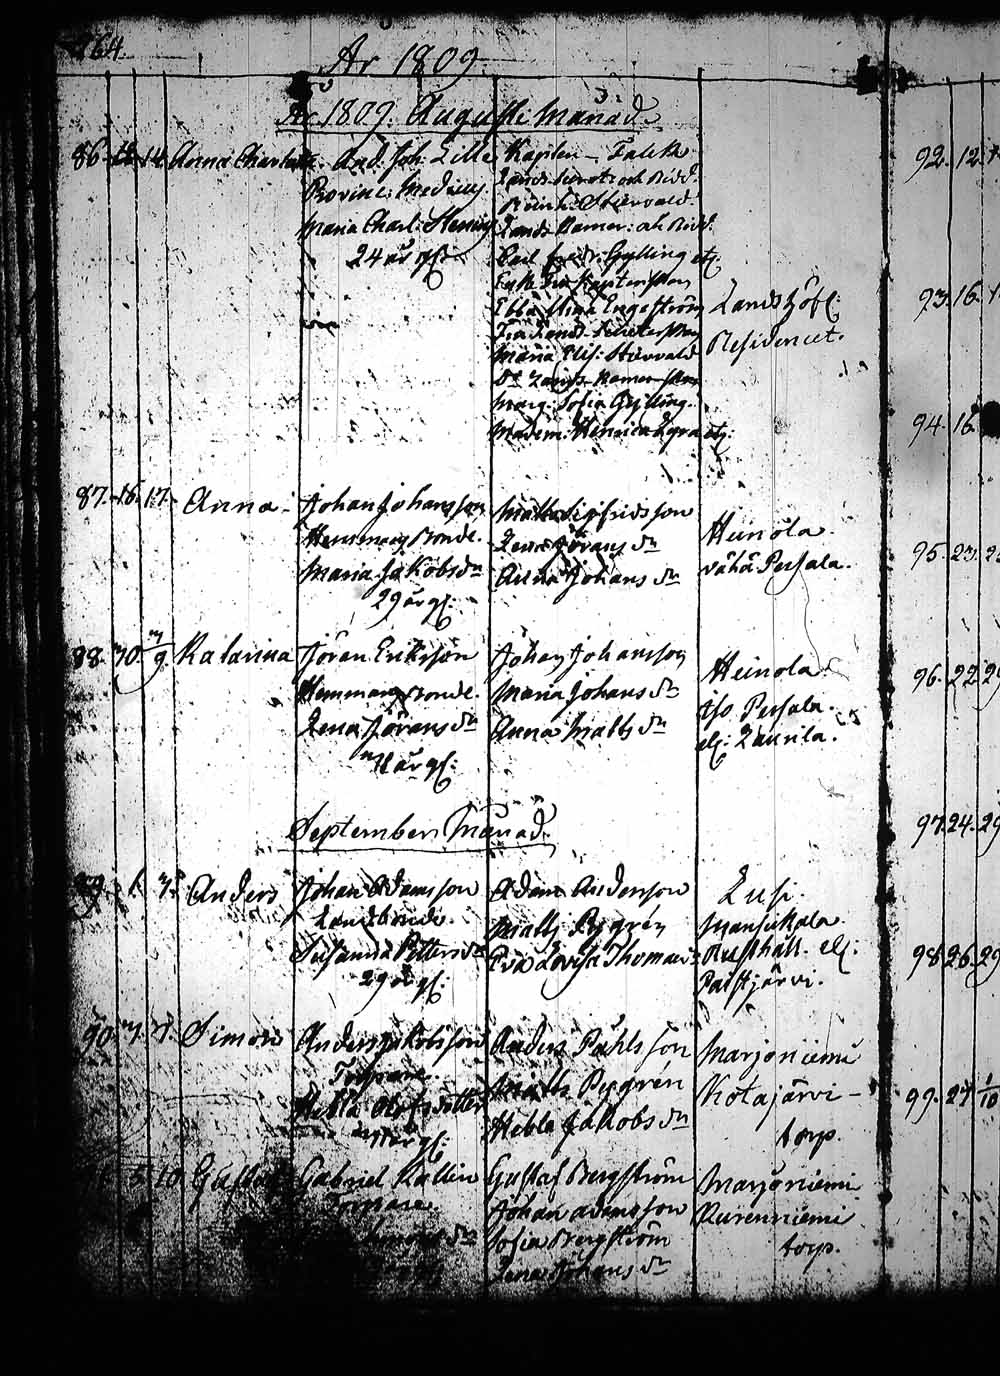 264.
År 1809.
År 1809. Augusti Månad
86. 12. 14. Anna Charlotta. And. Joh. Lille
Provinc: Medicus
Maria Charl: Heming
24 år gl:
Kapiten - Falck
Lands Secret: och Ridd.
Reinh: Stiervald
Lands Kamer: och Ridd.
Carl Fredr: Gylling etc:
Enke Fru Kaptenskan
Ebba Ulrica Engeström
Fru Lands Secreterskan
Maria Elis: Stiervald
Do Lands Kamerskan
Marg: Sofia Gylling.
Madem: Henrica etc:
Landshöfd:
Residencet.
87. 16. 17. Anna
Johan Johansson
Hemmans Bonde.
Maria Jakobs dr
29 år gl:
Matts Sigfridsson
Lena Görans dr
Anna Johans dr
Heinola.
vähä Persala.
88. 30. 9. Katarina
Göran Eriksson
Hemmans Bonde.
Lena Görans dr
år gl:
Johan Johansson
Maria Johans dr
Anna Matts dr
Heinola
iso Persala.
ell: Laurila.
September Månad.
89. 1. 3. Anders
Johan Adamsson
Landbonde.
Susanna Petters dr
29 år gl:
Adam Andersson
Matts Pygrén
Eva Lovisa Thomae
Lusi.
Mansikala
Rusthåll. ell:
Patstjärvi.
90. 7. Simon
Anders Jakobsson
Torpare.
Hebla Olofsdotter
år gl:
Anders Påhlsson
Matts Pygrén
Hebla Jakobs dr
Marjoniemi
Kotajärvi -
torp.
5. 10. Gustaf
Gabriel Kallin
Torpare.
dr
Gustaf Bergström
Johan Adamsson
Sofia Bergström
Lena Johans dr
Marjoniemi
Kurenniemi
torp.
92. 12.
93. 16.
94. 16.
95. 23.
96. 22. 29
97. 24. 29
98. 26. 29
99. 27. 1/10